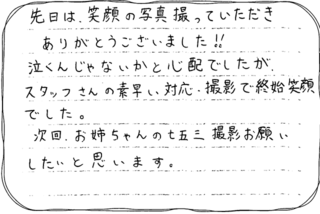 先日は、笑顔の写真撮っていただき
ありがとうございました!!
泣くんじゃないかと心配でしたが、
スタッフさんの素早い対応・撮影で終始笑顔
でした。
次回、お姉ちゃんの七五三撮影お願い
したいと思います。